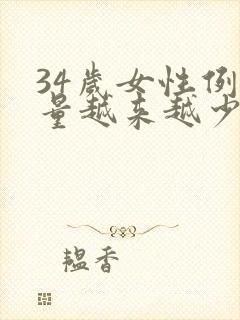 34岁女性例
量越来越少
韫香